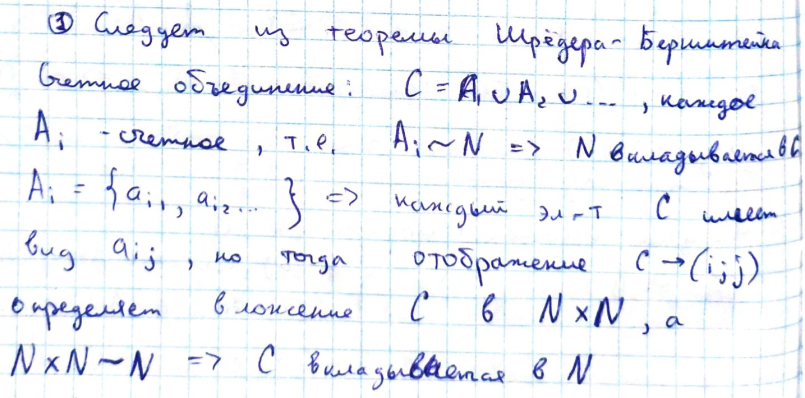 ③ Следует из теоремы Шрёдера-Бернштейна
Счетное объединение: C = A₁ ∪ A₂ ∪ ..., каждое
Aᵢ - счетное, т.е. Aᵢ ~ N => N вкладывается в C
Aᵢ = {aᵢ₁, aᵢ₂...} => каждый эл-т C имеет
вид aᵢⱼ, но тогда отображение C → (i;j)
определяет вложение C в N×N, а
N×N ~ N => C вкладывается в N